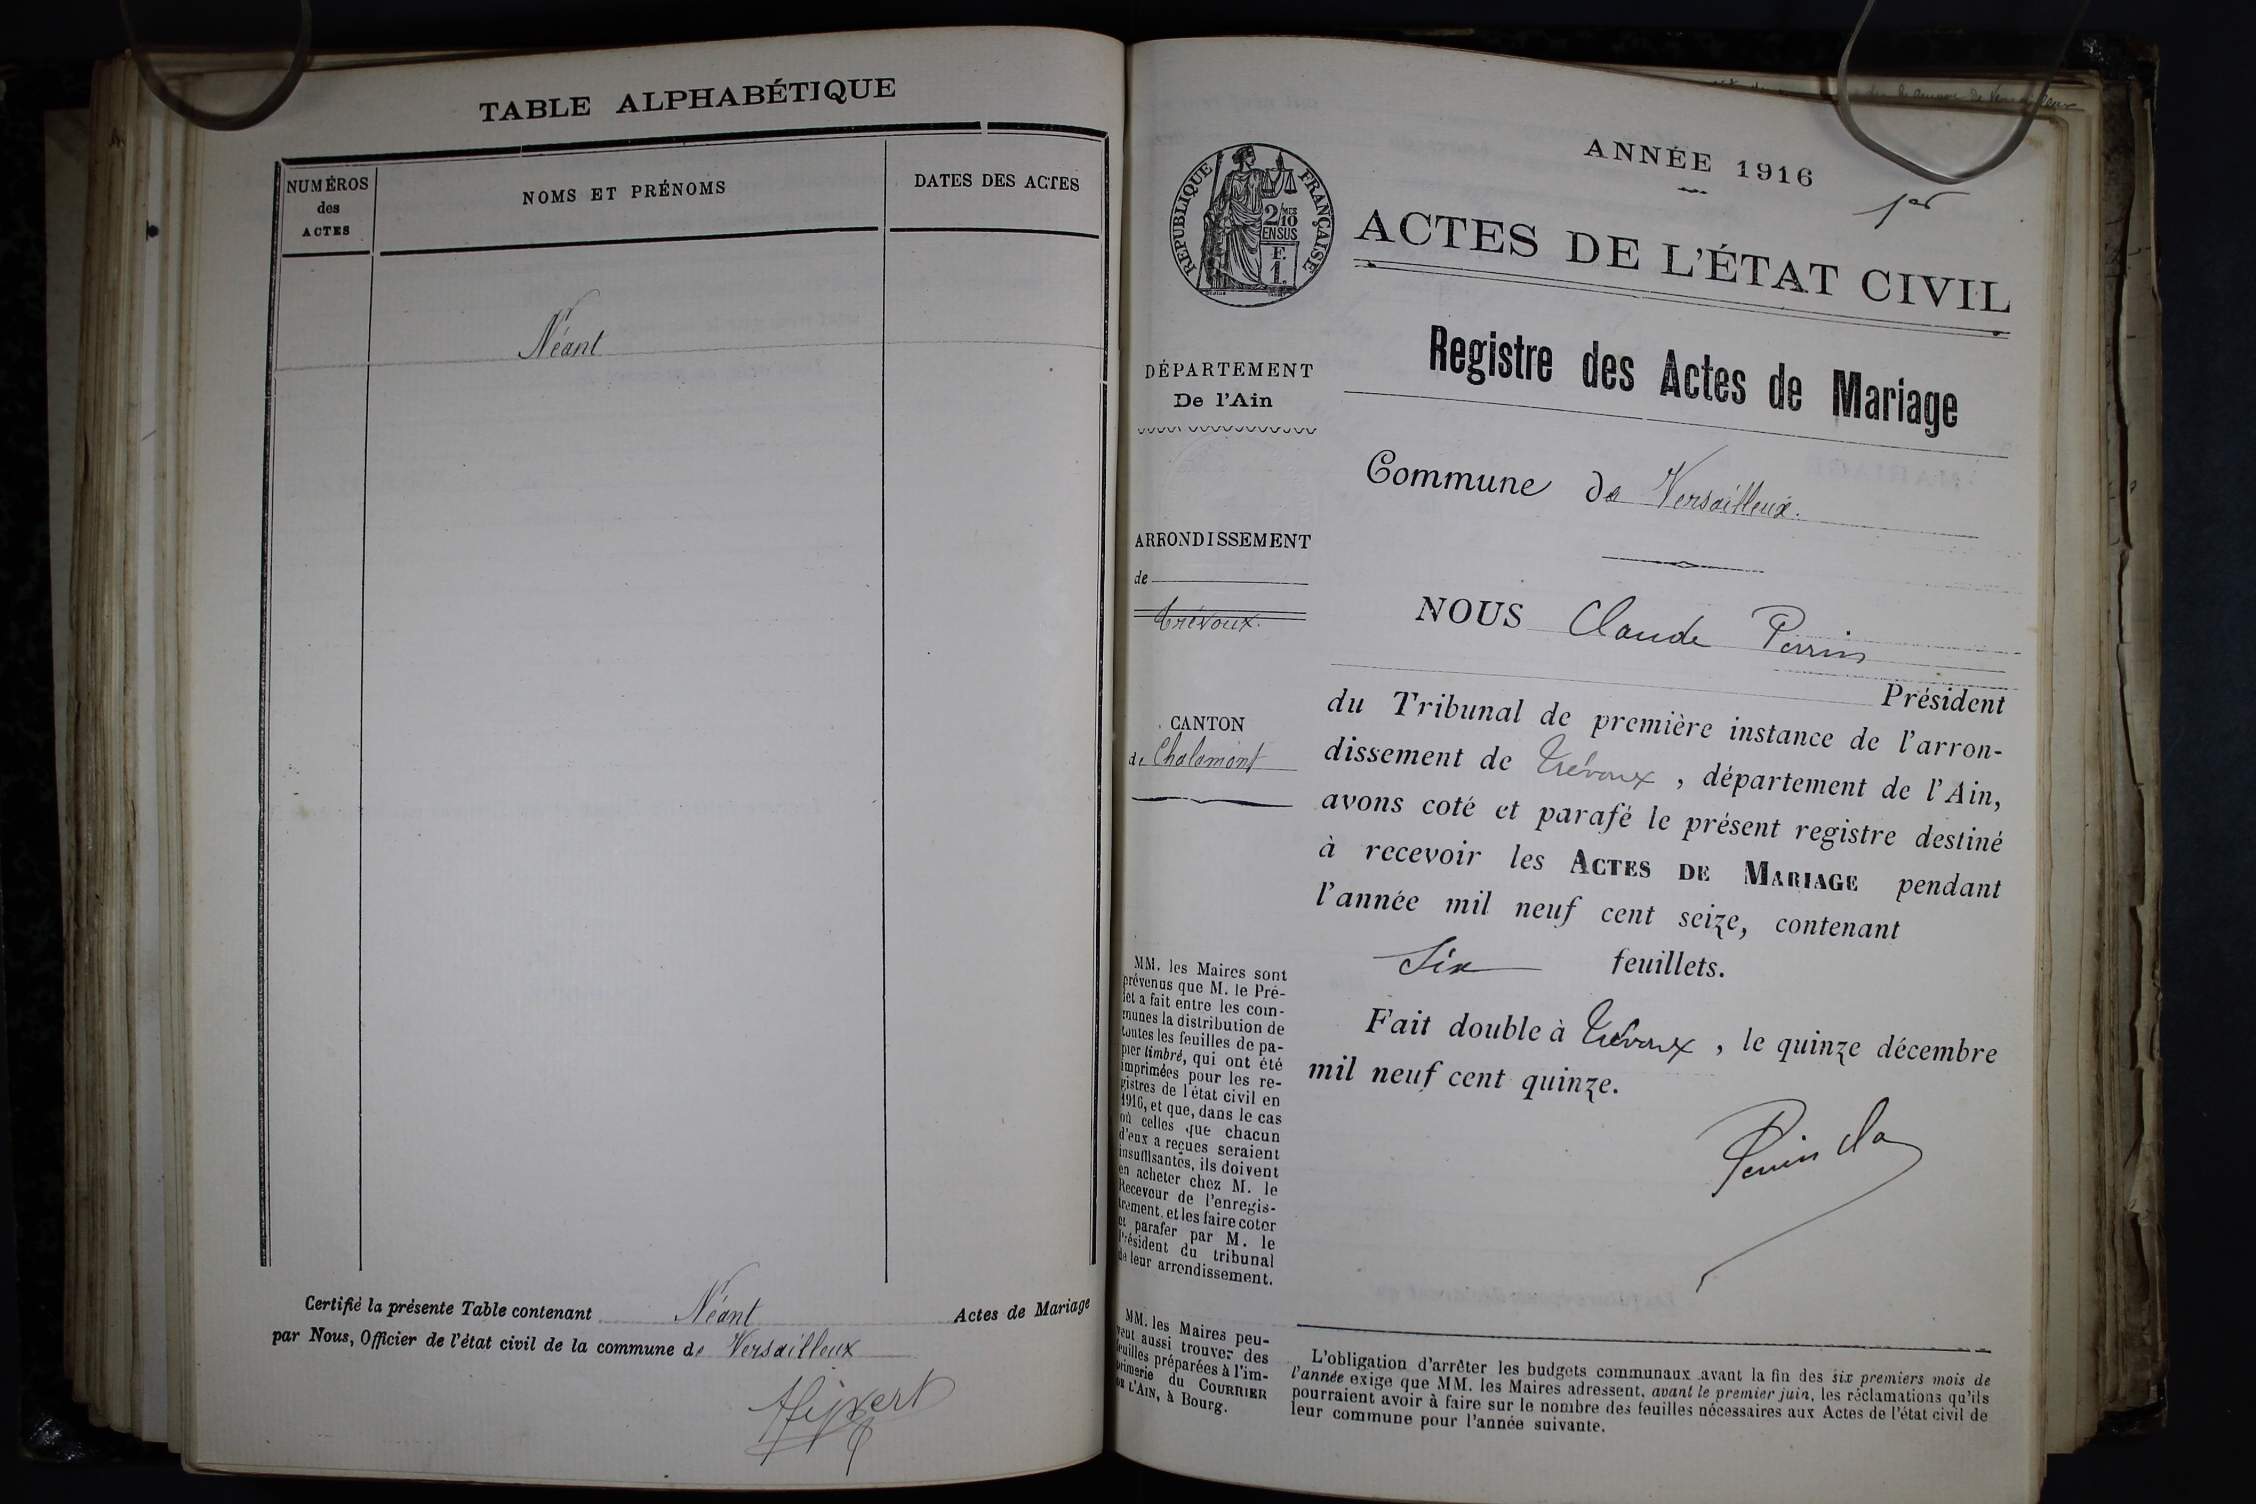 TABLE ALPHABÉTIQUE
NUMÉROS
des
ACTES
NOMS ET PRÉNOMS
DATES DES ACTES
Néant
Certifié la présente Table contenant Néant Actes de Mariage
par Nous, Officier de l'état civil de la commune de Versailleux
ANNÉE 1916
1er
RÉPUBLIQUE FRANÇAISE
2/10
MES
EN SUS
F.
1.
ACTES DE L'ÉTAT CIVIL
Registre des Actes de Mariage
DÉPARTEMENT
De l'Ain
Commune de Versailleux.
ARRONDISSEMENT
de
Trévoux.
CANTON
de Chalamont
NOUS Claude Perrin
Président
du Tribunal de première instance de l'arron-
dissement de Trévoux, département de l'Ain,
avons coté et parafé le présent registre destiné
à recevoir les ACTES DE MARIAGE pendant
l'année mil neuf cent seize, contenant
Six feuillets.
Fait double à Trévoux, le quinze décembre
mil neuf cent quinze.
Perrin Cla
MM. les Maires sont
prévenus que M. le Pré-
fet a fait entre les com-
munes la distribution de
toutes les feuilles de pa-
pier timbré, qui ont été
imprimées pour les re-
gistres de l'état civil en
1916, et que, dans le cas
où celles que chacun
d'eux a reçues seraient
insuffisantes, ils doivent
en acheter chez M. le
Receveur de l'enregis-
trement, et les faire coter
et parafer par M. le
Président du tribunal
de leur arrondissement.
MM. les Maires peu-
vent aussi trouver des
feuilles préparées à l'im-
primerie du COURRIER
DE L'AIN, à Bourg.
L'obligation d'arrêter les budgets communaux avant la fin des six premiers mois de
l'année exige que MM. les Maires adressent, avant le premier juin, les réclamations qu'ils
pourraient avoir à faire sur le nombre des feuilles nécessaires aux Actes de l'état civil de
leur commune pour l'année suivante.